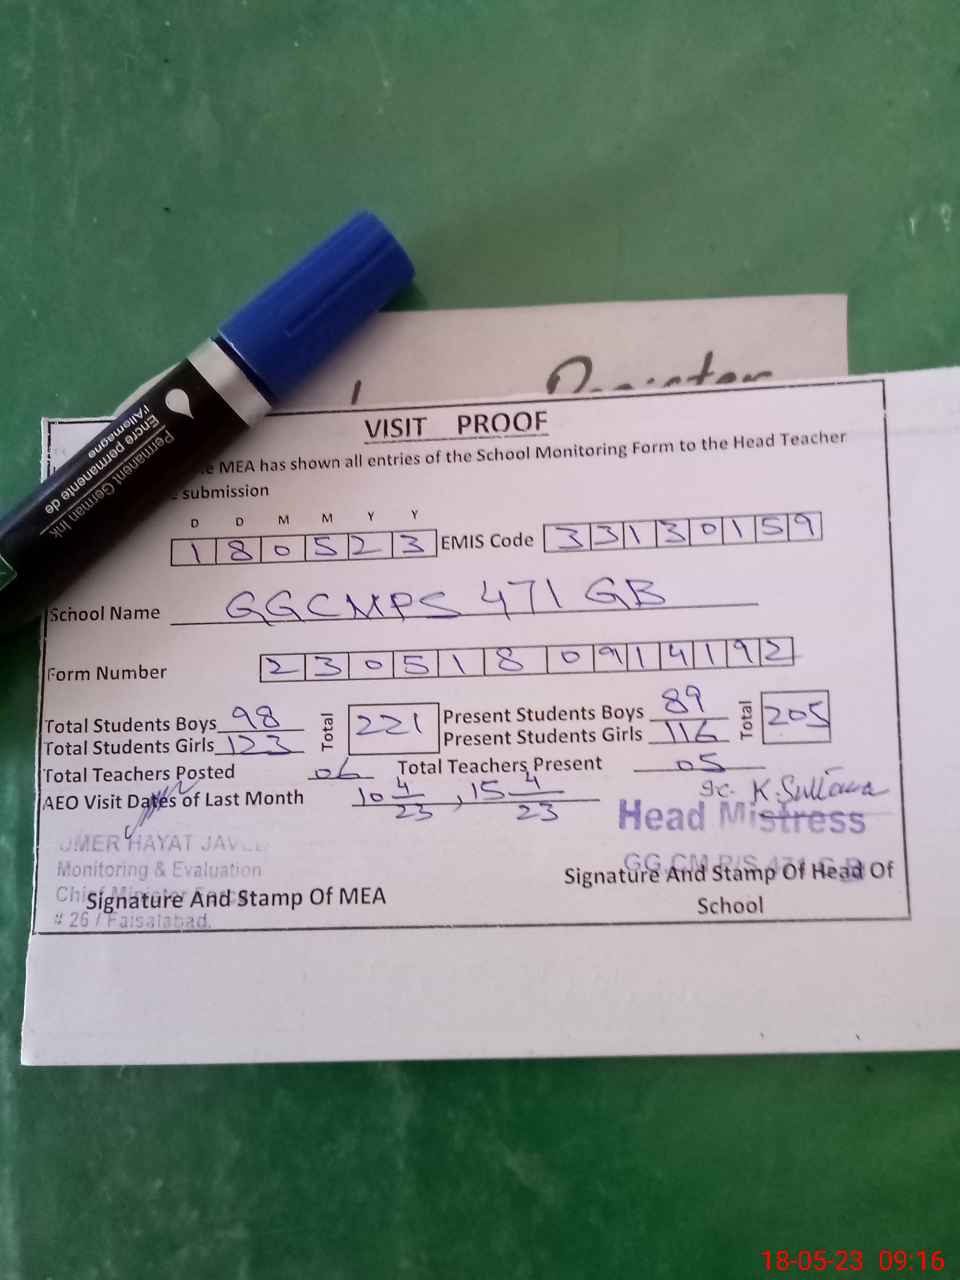 Register
Permanent German Ink
Encre permanente de
l'Allemagne
VISIT PROOF
MEA has shown all entries of the School Monitoring Form to the Head Teacher
submission
D D M M Y Y
1 8 0 5 2 3 EMIS Code 3 3 1 3 0 1 5 9
School Name GGCMPS 471 GB
Form Number 2 3 0 5 1 8 0 9 1 4 1 9 2
Total Students Boys 98 Total 221 Present Students Boys 89 Total 205
Total Students Girls 123 Present Students Girls 116
Total Teachers Posted 06 Total Teachers Present 05
AEO Visit Dates of Last Month 10 4/23, 15 4/23
K. Sultana
Head Mistress
UMER HAYAT
Monitoring & Evaluation
GG.CM.P/S 471 G.B
Signature And Stamp Of Head Of
School
Signature And Stamp Of MEA
# 26 / Faisalabad.
18-05-23 09:16